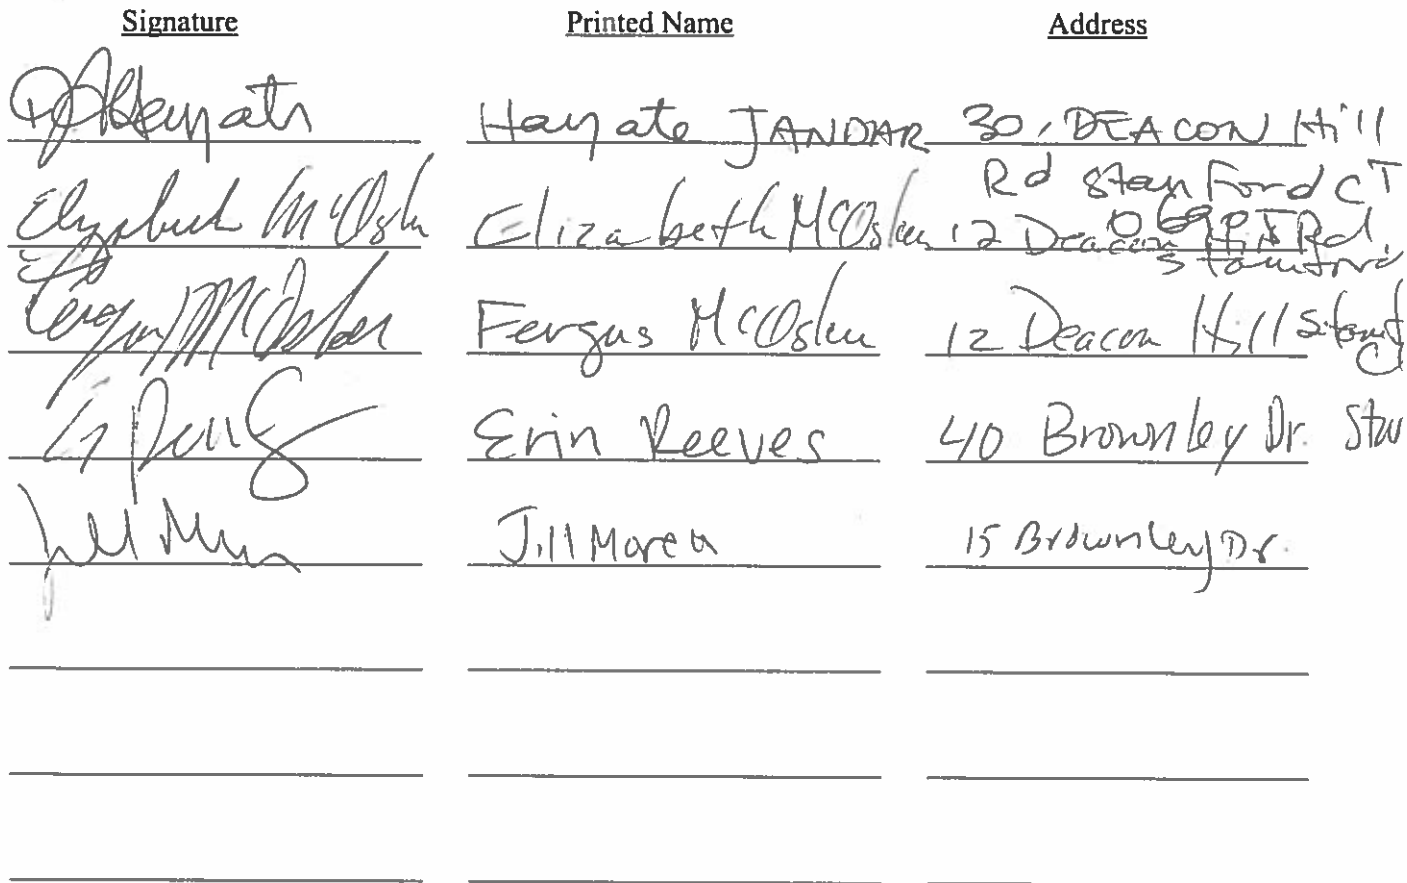 Signature Printed Name Address
Hayate JANDAR 30, DEACON Hill
Rd Stanford CT
Elizabeth McOsker Elizabeth McOsker 12 Deacon Hill Rd
Stamford
Fergus McOsker Fergus McOsker 12 Deacon Hill Stamf
Erin Reeves 40 Brownley Dr. Stam
Jill Jill Moren 15 Brownley Dr.